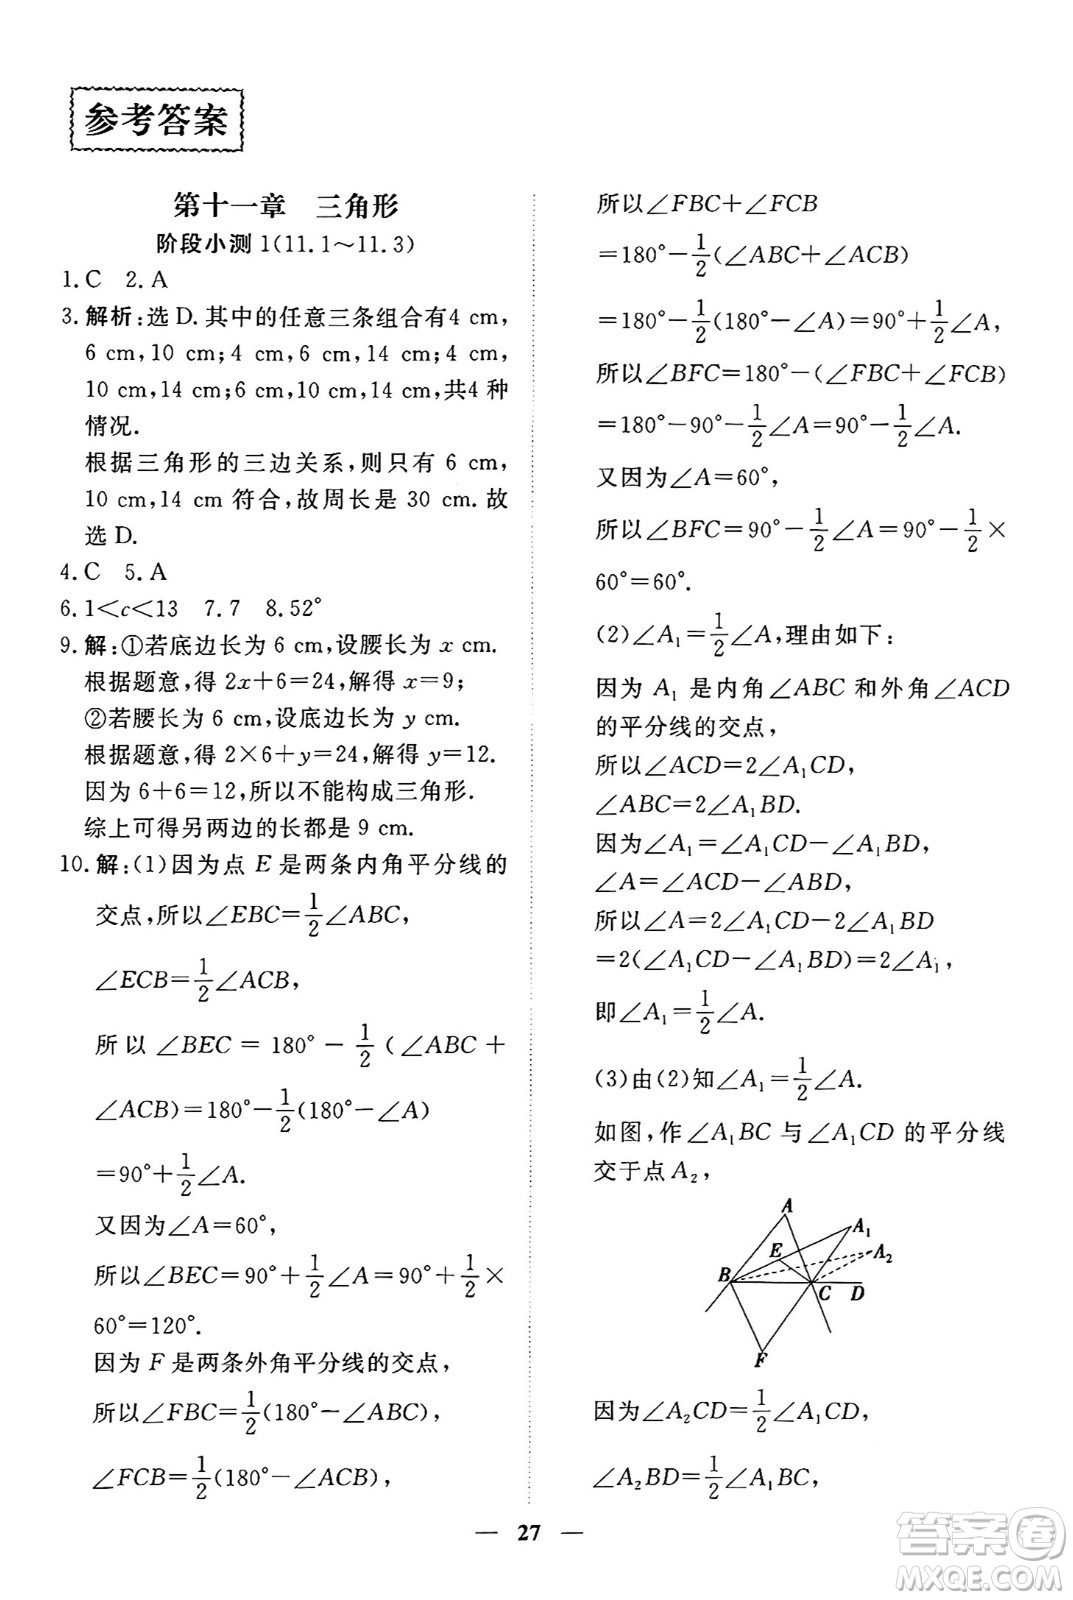 参考答案
第十一章　三角形
阶段小测 1(11.1～11.3)
1.C　2.A
3.解析:选 D.其中的任意三条组合有4 cm,
6 cm,10 cm;4 cm,6 cm,14 cm;4 cm,
10 cm,14 cm;6 cm,10 cm,14 cm,共4 种
情况.
根据三角形的三边关系,则只有 6 cm,
10 cm,14 cm 符合,故周长是 30 cm.故
选 D.
4.C　5.A
6.1<c<13　7.7　8.52°
9.解:①若底边长为 6 cm,设腰长为 x cm.
根据题意,得 2x+6=24,解得 x=9;
②若腰长为 6 cm,设底边长为 y cm.
根据题意,得 2×6+y=24,解得 y=12.
因为 6+6=12,所以不能构成三角形.
综上可得另两边的长都是 9 cm.
10.解:(1)因为点 E 是两条内角平分线的
交点,所以∠EBC=1/2∠ABC,
∠ECB=1/2∠ACB,
所以 ∠BEC = 180° − 1/2 (∠ABC +
∠ACB)=180°−1/2(180°−∠A)
=90°+1/2∠A.
又因为∠A=60°,
所以∠BEC=90°+1/2∠A=90°+1/2×
60°=120°.
因为 F 是两条外角平分线的交点,
所以∠FBC=1/2(180°−∠ABC),
∠FCB=1/2(180°−∠ACB),
所以∠FBC+∠FCB
=180°−1/2(∠ABC+∠ACB)
=180°−1/2(180°−∠A)=90°+1/2∠A,
所以∠BFC=180°−(∠FBC+∠FCB)
=180°−90°−1/2∠A=90°−1/2∠A.
又因为∠A=60°,
所以∠BFC=90°−1/2∠A=90°−1/2×
60°=60°.
(2)∠A₁=1/2∠A,理由如下:
因为 A₁ 是内角∠ABC 和外角∠ACD
的平分线的交点,
所以∠ACD=2∠A₁CD,
∠ABC=2∠A₁BD.
因为∠A₁=∠A₁CD−∠A₁BD,
∠A=∠ACD−∠ABD,
所以∠A=2∠A₁CD−2∠A₁BD
=2(∠A₁CD−∠A₁BD)=2∠A₁,
即∠A₁=1/2∠A.
(3)由(2)知∠A₁=1/2∠A.
如图,作∠A₁BC 与∠A₁CD 的平分线
交于点 A₂,
A
A₁
E
A₂
B
C
D
F
因为∠A₂CD=1/2∠A₁CD,
∠A₂BD=1/2∠A₁BC,
— 27 —
答案卷
MXQE.COM